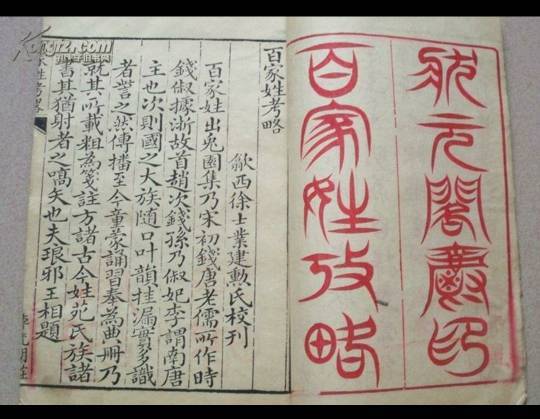 狀元閣印
百家姓攷略
百家姓考略
歙西徐士業建勳氏校刊
百家姓出兔園集乃宋初錢唐老儒所作時
錢俶據浙故首趙次錢孫乃俶妃李謂南唐
主也次則國之大族隨口叶韻挂漏實多識
者訾之然傳播至今童蒙誦習奉為典册乃
就其所載粗為箋註方諸古今姓苑氏族諸
書其猶射者之嚆矢也夫琅邪王相題
李光明莊